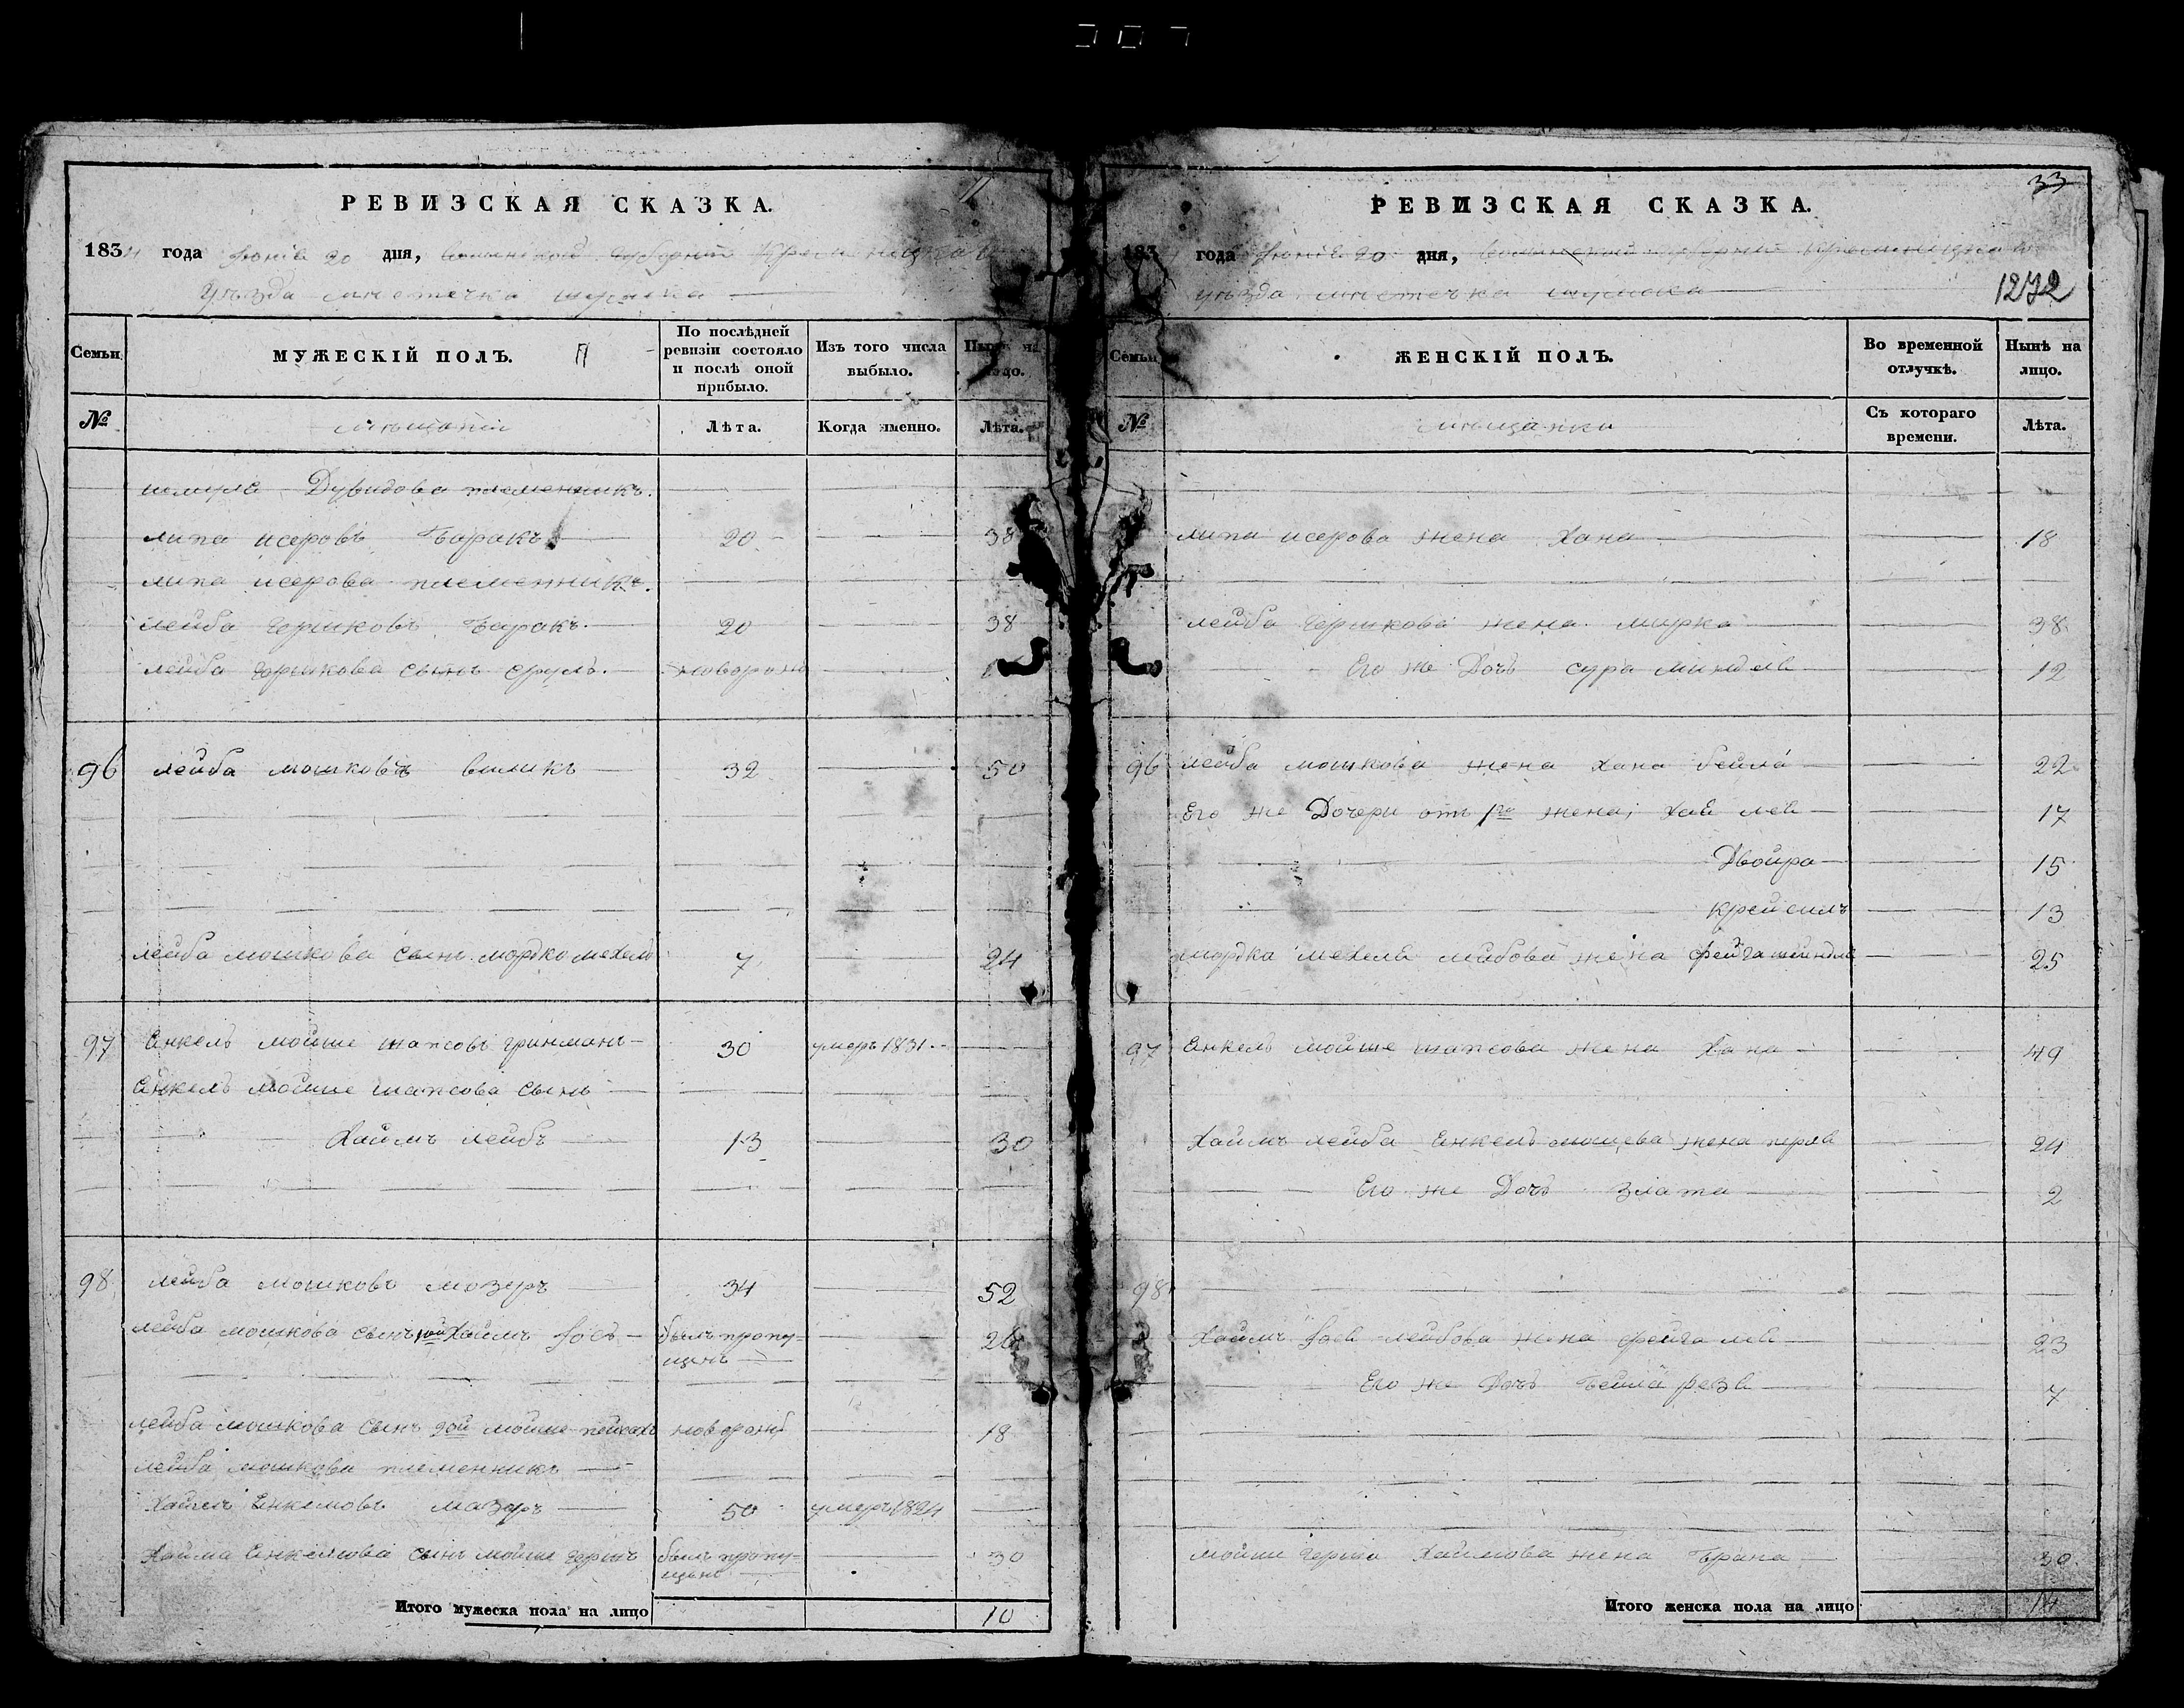 РЕВИЗСКАЯ СКАЗКА.
1834 года Юнiя 20 дня, Волынской Губернiи Кременецкаго
Уѣзда мѣстечка Шумска
Семьи
МУЖЕСКІЙ ПОЛЪ.
По послѣдней ревизіи состояло и послѣ оной прибыло.
Изъ того числа выбыло.
Нынѣ на лицо.
№
мѣщане
Лѣта.
Когда именно.
Лѣта.
Дувидова племенникъ.
липа исеровъ Баракъ 20 38
липа исерова племенникъ.
лейба Гершковъ Баракъ. 20 38
лейба Гершкова сынъ Сруль. новорожд
96 лейба мошковъ виликъ 32 50
лейба мошкова сынъ мордко мехель 7 24
97 Енкель мойше шапсовъ гринманъ 30 умеръ 1831.
Енкель мойше шапсова сынъ
Хаимъ лейбъ 13 30
98 лейба мошковъ мозуръ 34 52
лейба мошкова сынъ 1ой Хаимъ Iосъ былъ пропу=
щенъ 26
лейба мошкова сынъ 2ой мойше пейсахъ новорожд 18
лейба мошкова племенникъ
Хаимъ Енкелювъ мазуръ 50 умеръ 1824
Хаима Енкелюва сынъ мойше Гершъ былъ пропу=
щенъ 30
Итого мужеска пола на лицо 10
33
РЕВИЗСКАЯ СКАЗКА.
183 года Юнiя 20 дня, Волынской Губернiи Кременецкаго
уѣзда мѣстечка шумска
1272
Семьи
ЖЕНСКІЙ ПОЛЪ.
Во временной отлучкѣ.
Нынѣ на лицо.
№
мѣщанки
Съ котораго времени.
Лѣта.
липи исерова жена Хана 18
лейба Гершкова жена мирка 38
Его же Дочь сура миндля 12
96 лейба мошкова жена хана бейла 22
Его же Дочери отъ 1ой жена; хая лея 17
Двойра 15
крейсиль 13
мордка мехеля лейбова жена фейга шейндля 25
97 Енкель мойше шапсова жена Хана 49
Хаимъ лейба Енкель мошева жена перля 24
Его же Дочь злата 2
98
Хаимъ Iося лейбова жена фейга лея 23
Его же Дочь бейла рези 7
мойши Герша Хаимова жена Брана 30
Итого женска пола на лицо 14